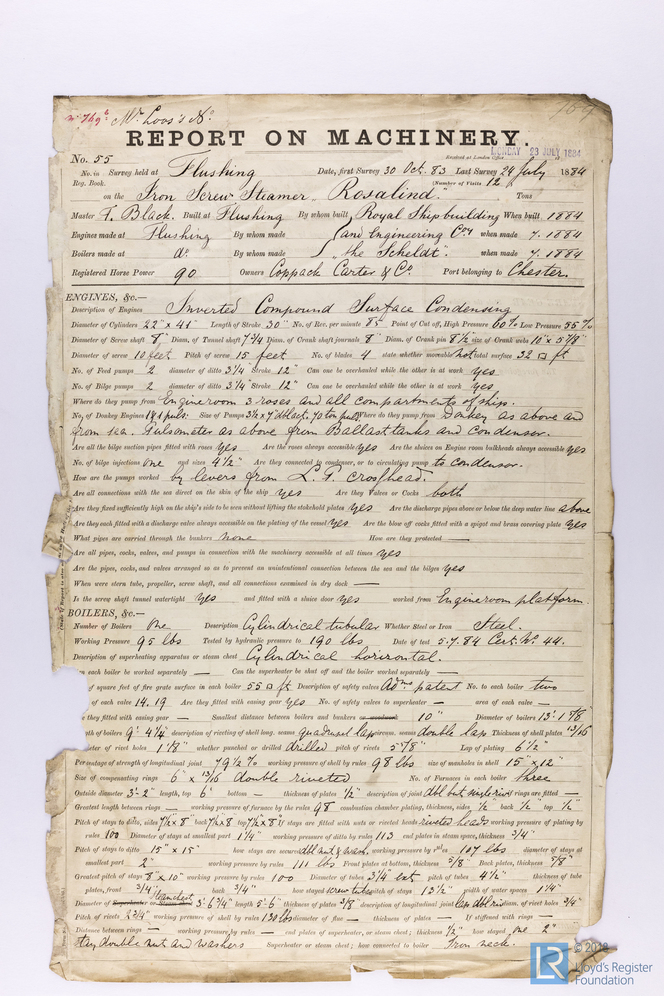 Mr. Loos's No.
REPORT ON MACHINERY.
Received at London Office
MONDAY 29 JULY 1884
No. 55
No. in Survey held at Flushing Date, first Survey 30 Oct. 83 Last Survey 24 July 1884
Reg. Book. (Number of Visits 12
on the Iron Screw Steamer "Rosalind". Tons
Master F. Black. Built at Flushing By whom built Royal Shipbuilding When built 1884
Engines made at Flushing By whom made and Engineering Coy when made 7. 1884
Boilers made at Do. By whom made "the Scheldt". when made 7. 1884
Registered Horse Power 90 Owners Coppack Carter & Co. Port belonging to Chester.
ENGINES, &c.—
Description of Engines Inverted Compound Surface Condensing
Diameter of Cylinders 22" x 41" Length of Stroke 30" No. of Rev. per minute 85 Point of Cut off, High Pressure 60% Low Pressure 55%
Diameter of Screw shaft 8" Diam. of Tunnel shaft 7 3/4 Diam. of Crank shaft journals 8" Diam. of Crank pin 8 1/2 size of Crank webs 10" x 5 7/8"
Diameter of screw 10 feet Pitch of screw 15 feet No. of blades 4 state whether moveable not total surface 32 □ ft
No. of Feed pumps 2 diameter of ditto 3 1/4 Stroke 12" Can one be overhauled while the other is at work yes
No. of Bilge pumps 2 diameter of ditto 3 1/4 Stroke 12" Can one be overhauled while the other is at work yes
Where do they pump from Engineroom 3 roses and all compartments of ship.
No. of Donkey Engines 1 & 1 puls: Size of Pumps 3 1/2 x 7 dbl act, 70 ton puls Where do they pump from Donkey as above and
from sea. Pulsometer as above from Ballasttanks and condensor.
Are all the bilge suction pipes fitted with roses yes Are the roses always accessible yes Are the sluices on Engine room bulkheads always accessible yes
No. of bilge injections one and sizes 4 1/2" Are they connected to condenser, or to circulating pump to condensor.
How are the pumps worked by levers from L. P. crosshead.
Are all connections with the sea direct on the skin of the ship yes Are they Valves or Cocks both
Are they fixed sufficiently high on the ship's side to be seen without lifting the stokehold plates yes Are the discharge pipes above or below the deep water line above
Are they each fitted with a discharge valve always accessible on the plating of the vessel yes Are the blow off cocks fitted with a spigot and brass covering plate yes
What pipes are carried through the bunkers none How are they protected —
Are all pipes, cocks, valves, and pumps in connection with the machinery accessible at all times yes
Are the pipes, cocks, and valves arranged so as to prevent an unintentional connection between the sea and the bilges yes
When were stern tube, propeller, screw shaft, and all connections examined in dry dock —
Is the screw shaft tunnel watertight yes and fitted with a sluice door yes worked from Engineroom platform.
BOILERS, &c.—
Number of Boilers One Description Cylindrical tubular Whether Steel or Iron Steel.
Working Pressure 95 lbs Tested by hydraulic pressure to 190 lbs Date of test 5.7.84 Cert. No. 44.
Description of superheating apparatus or steam chest Cylindrical horizontal.
each boiler be worked separately — Can the superheater be shut off and the boiler worked separately —
of square feet of fire grate surface in each boiler 55 □ ft Description of safety valves Adms patent No. to each boiler two
of each valve 14.19 Are they fitted with easing gear yes No. of safety valves to superheater — area of each valve —
they fitted with easing gear — Smallest distance between boilers and bunkers or woodwork 10" Diameter of boilers 13'. 1 7/8"
of boilers 9' 4 1/4 description of riveting of shell long. seams quadrupel lap circum. seams double lap Thickness of shell plates 13/16
of rivet holes 1 1/8" whether punched or drilled drilled pitch of rivets 5 7/8" Lap of plating 6 1/2"
Percentage of strength of longitudinal joint 79 1/2% working pressure of shell by rules 98 lbs size of manholes in shell 15" x 12"
Size of compensating rings 6" x 13/16 double riveted No. of Furnaces in each boiler three
Outside diameter 3'-2" length, top 6' bottom — thickness of plates 1/2" description of joint dbl but single rivd rings are fitted —
Greatest length between rings — working pressure of furnace by the rules 98 combustion chamber plating, thickness, sides 1/2" back 1/2" top 1/2"
Pitch of stays to ditto, sides 7 1/2 x 8" back 7 1/2 x 8 top 7 1/2 x 8" If stays are fitted with nuts or riveted heads riveted heads working pressure of plating by
rules 100 Diameter of stays at smallest part 1 1/4" working pressure of ditto by rules 113 end plates in steam space, thickness 3/4"
Pitch of stays to ditto 15" x 15" how stays are secured dbl nut & wash. working pressure by rules 107 lbs diameter of stays at
smallest part 2" working pressure by rules 111 lbs Front plates at bottom, thickness 5/8" Back plates, thickness 5/8"
Greatest pitch of stays 8" x 10" working pressure by rules 100 Diameter of tubes 3 1/4 ext pitch of tubes 4 1/2" thickness of tube
plates, front 3/4" back 3/4" how stayed screw tubes pitch of stays 13 1/2" width of water spaces 1 1/4"
Diameter of Superheater or Steam chest 3'. 6 3/4" length 5'-6" thickness of plates 3/8 description of longitudinal joint lap dbl riv diam. of rivet holes 3/4"
Pitch of rivets 2 3/4" working pressure of shell by rules 130 lbs diameter of flue — thickness of plates — If stiffened with rings —
Distance between rings — working pressure by rules — end plates of superheater, or steam chest; thickness 1/2" how stayed one 2"
stay, double nut and washers Superheater or steam chest; how connected to boiler Iron neck.
© 2018
Lloyd's Register
Foundation